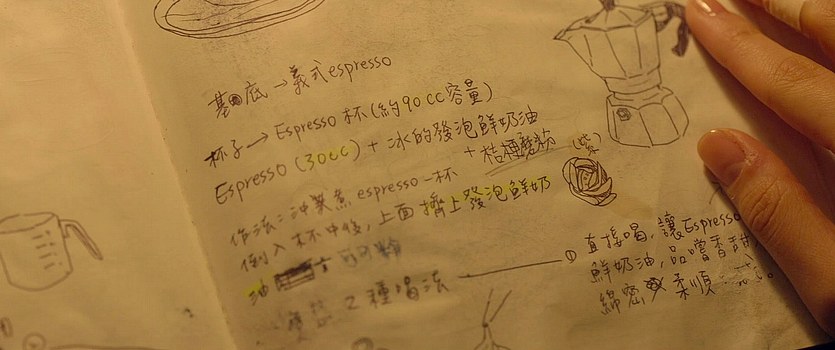 基底→義式espresso
杯子→Espresso杯(約90cc容量)
Espresso(30cc)+冰的發泡鮮奶油
+桔梗磨粉
(紫)
作法:沖煮 espresso一杯
倒入杯中後,上面擠上發泡鮮奶
油
2種喝法
①直接喝,讓Espresso
鮮奶油,品嚐香甜
綿密 柔順